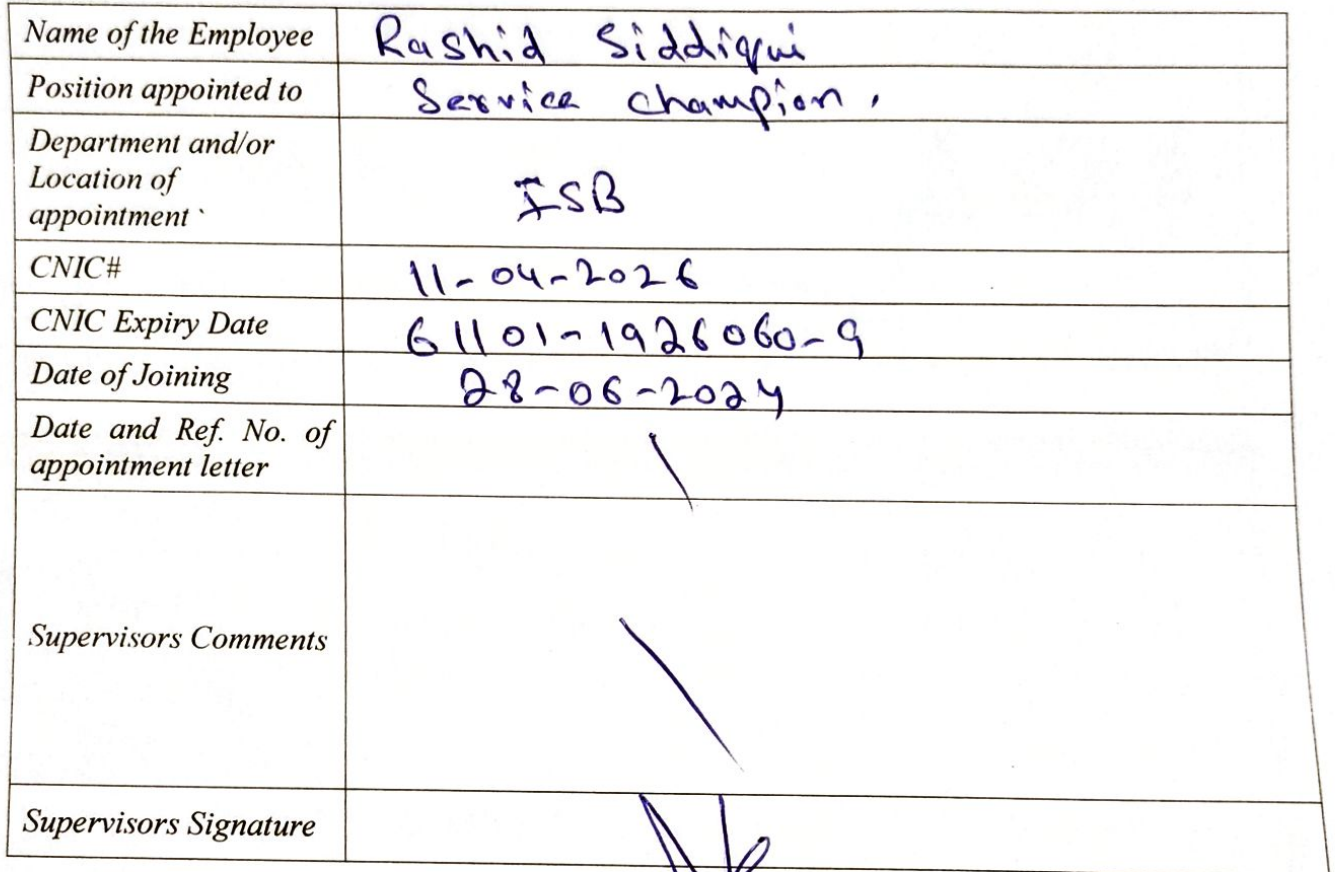 Name of the Employee Rashid Siddiqui
Position appointed to Service champion.
Department and/or
Location of
appointment ISB
CNIC# 11-04-2026
CNIC Expiry Date 61101-1926060-9
Date of Joining 28-06-2024
Date and Ref. No. of
appointment letter
Supervisors Comments
Supervisors Signature